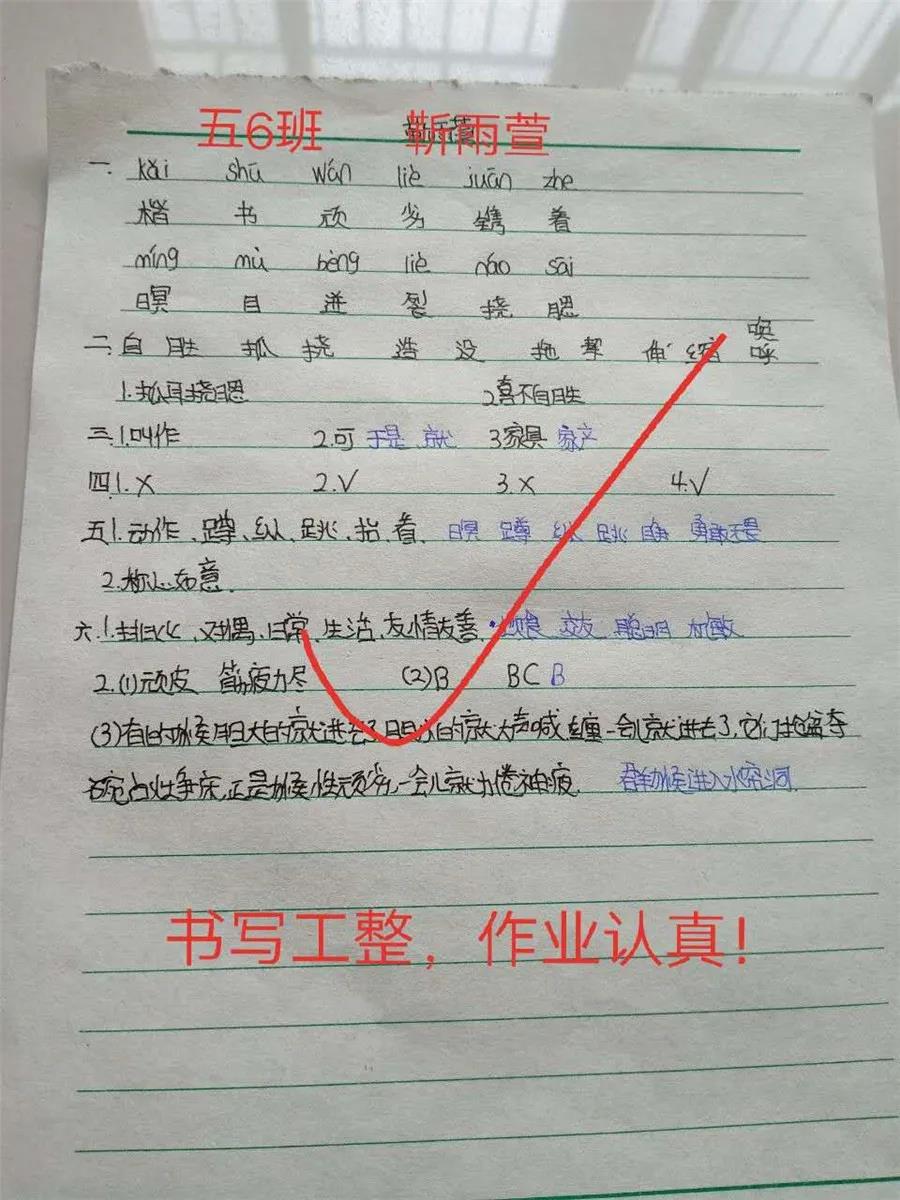 五6班 靳雨萱
一. kǎi shū wán liè juān zhe
楷 书 顽 劣 镌 着
míng mù bèng liè náo sāi
瞑 目 迸 裂 挠 腮
二. 自 胜 抓 挠 造 设 拖 帮 伸 缩 唤呼
1.抓耳挠腮 2喜不自胜
三.1.叫作 2.可 于是 就 3家具 家产
四.1.X 2.√ 3.X 4.√
五1.动作、蹲、纵、跳、抬、看. 瞑 蹲 纵 跳 睁 勇敢无畏
2.称心如意.
六.1.排比、对偶、日常、生活、友情友善. 交友 聪明 机敏
2.(1)顽皮 筋疲力尽 (2)B BC B
(3)有的猴胆大的就进去了胆小的就大声喊 一会儿就进去了,它们抢盆夺
碗占灶争床,正是猴性顽劣,一会儿就力倦神疲. 群猴进入水帘洞.
书写工整，作业认真！